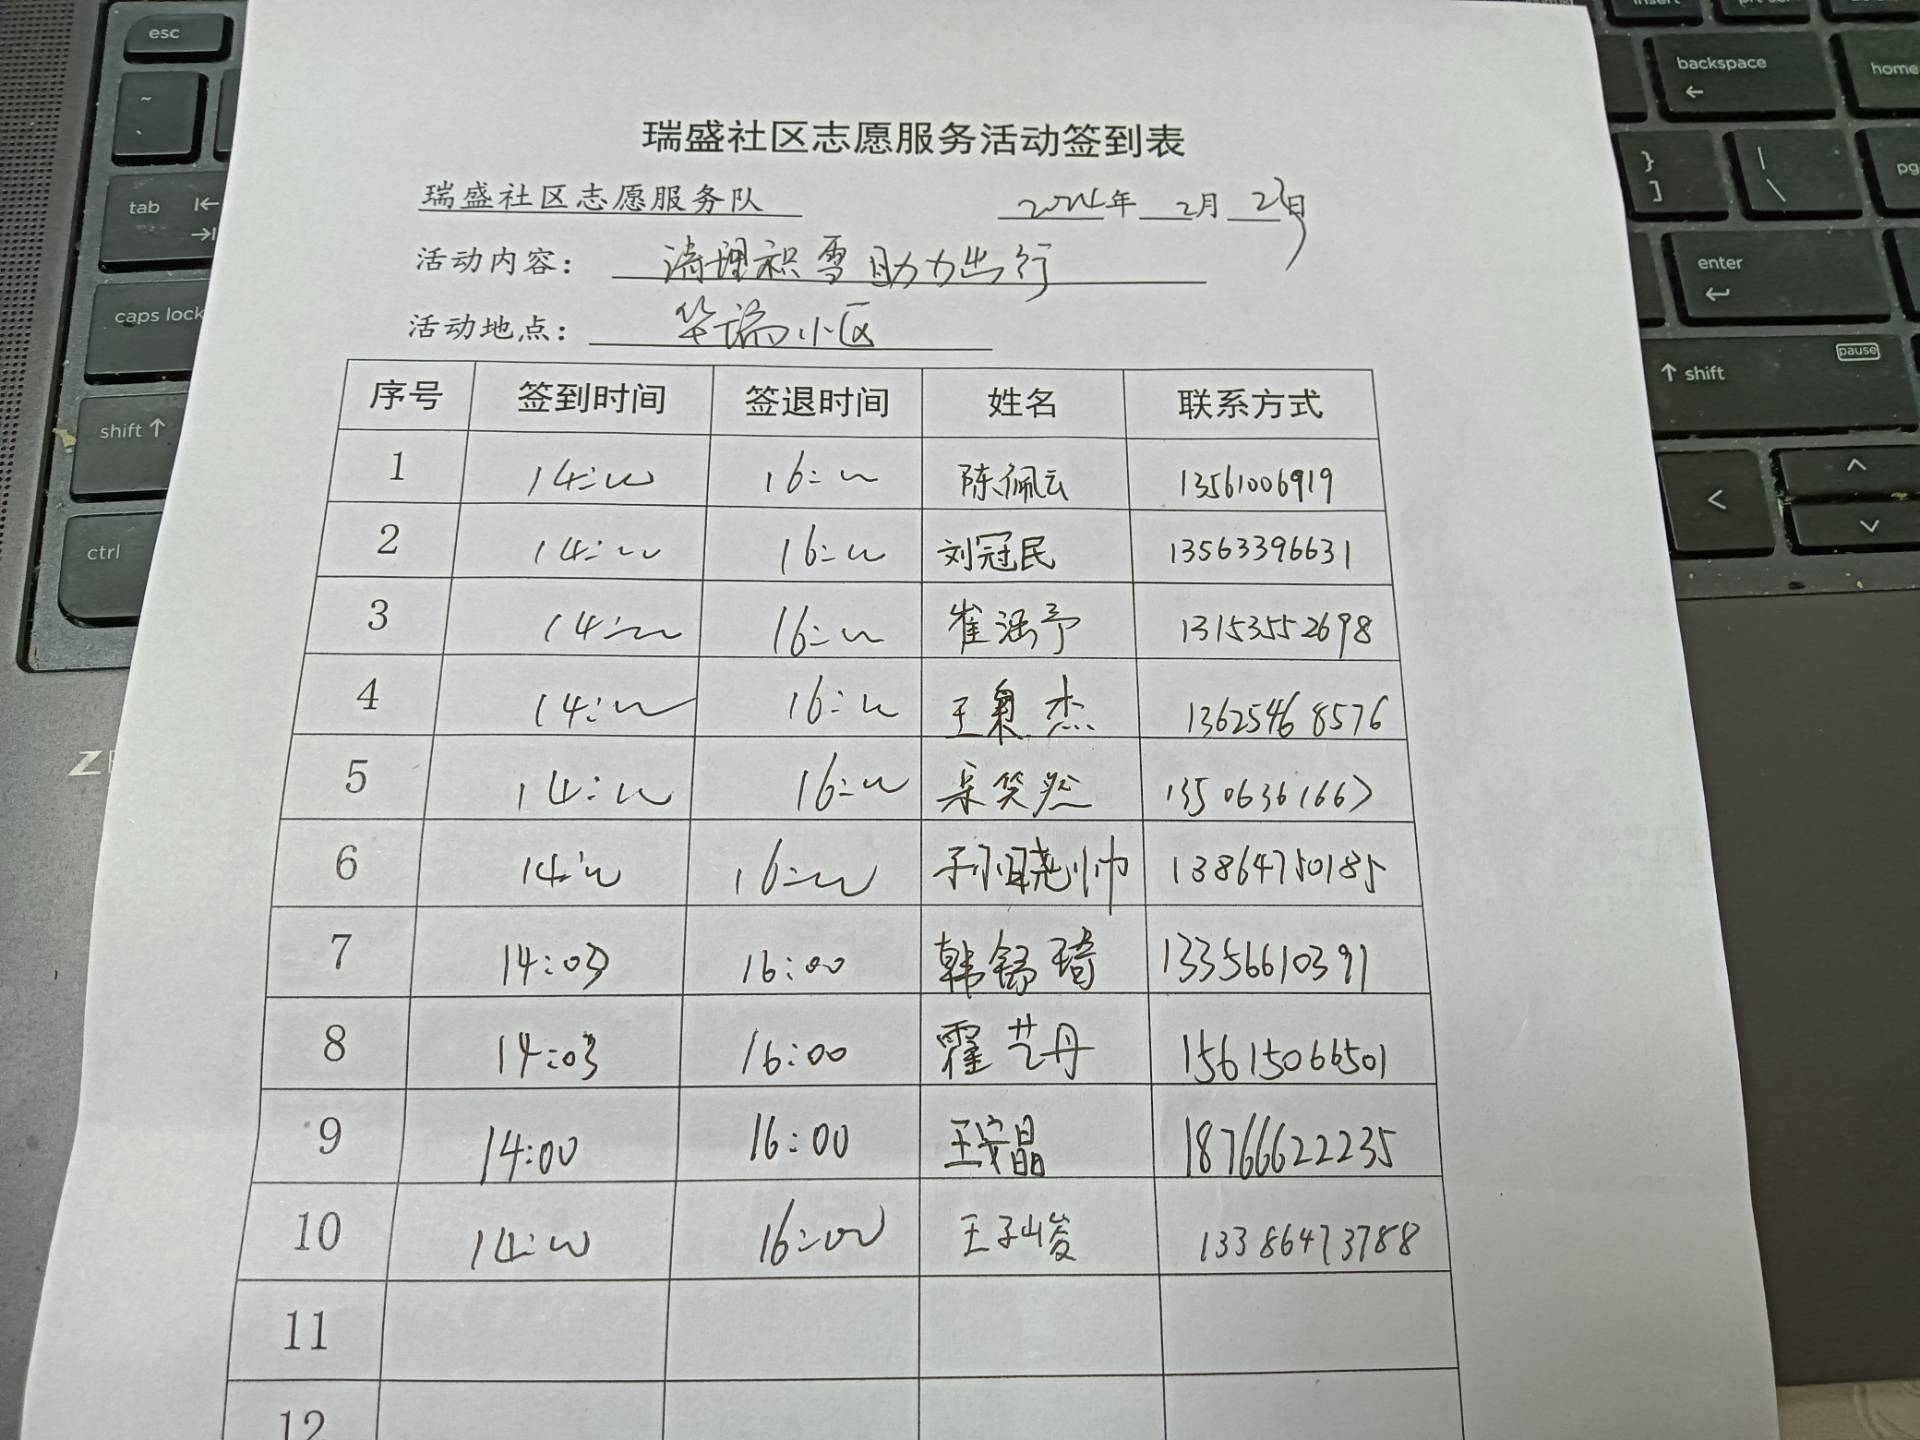 esc
insert
prt sc
backspace
home
~
`
}
]
|
\
pg
tab
enter
caps lock
pause
shift
shift
ctrl
Z
瑞盛社区志愿服务活动签到表
瑞盛社区志愿服务队 2024年 2月 23日
活动内容： 清理积雪助力出行
活动地点： 华瑞小区
序号 签到时间 签退时间 姓名 联系方式
1 14:00 16:00 陈佩云 13561006919
2 14:00 16:00 刘冠民 13563396631
3 14:00 16:00 崔涵予 13153552698
4 14:00 16:00 王 杰 13625468576
5 14:00 16:00 笑然 13506361667
6 14:00 16:00 孙晓帅 13864750185
7 14:03 16:00 韩舒琦 13356610391
8 14:03 16:00 霍艺丹 15615066501
9 14:00 16:00 王安晶 18766622235
10 14:00 16:00 王子峻 13386473788
11
12